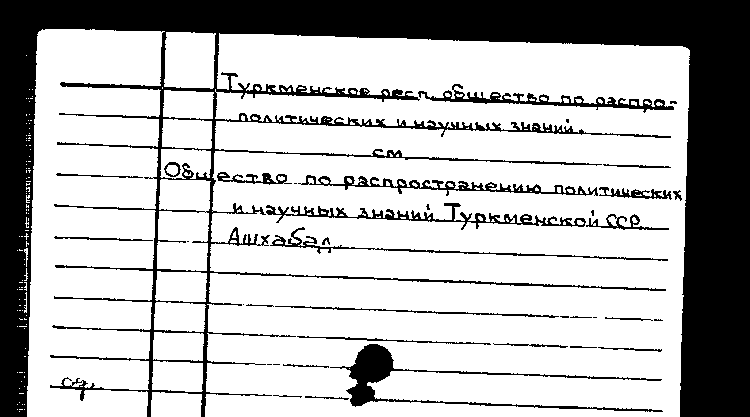 Туркменское респ. общество по распро-
политических и научных знаний.
см.
Общество по распространению политических
и научных знаний Туркменской ССР.
Ашхабад.